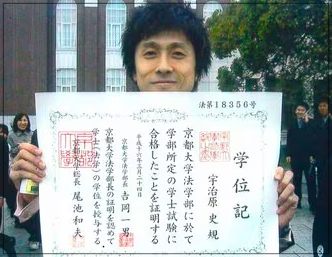 法第18356号
学位記
宇治原史規
京都大学法学部に於て
学部所定の学士試験に
合格したことを証明する
平成十三年三月二十四日
京都大学法学部長 吉岡一男
京都大学法学部長の証明を認めて
学士(法学)の学位を授与する
京都大学総長 尾池和夫